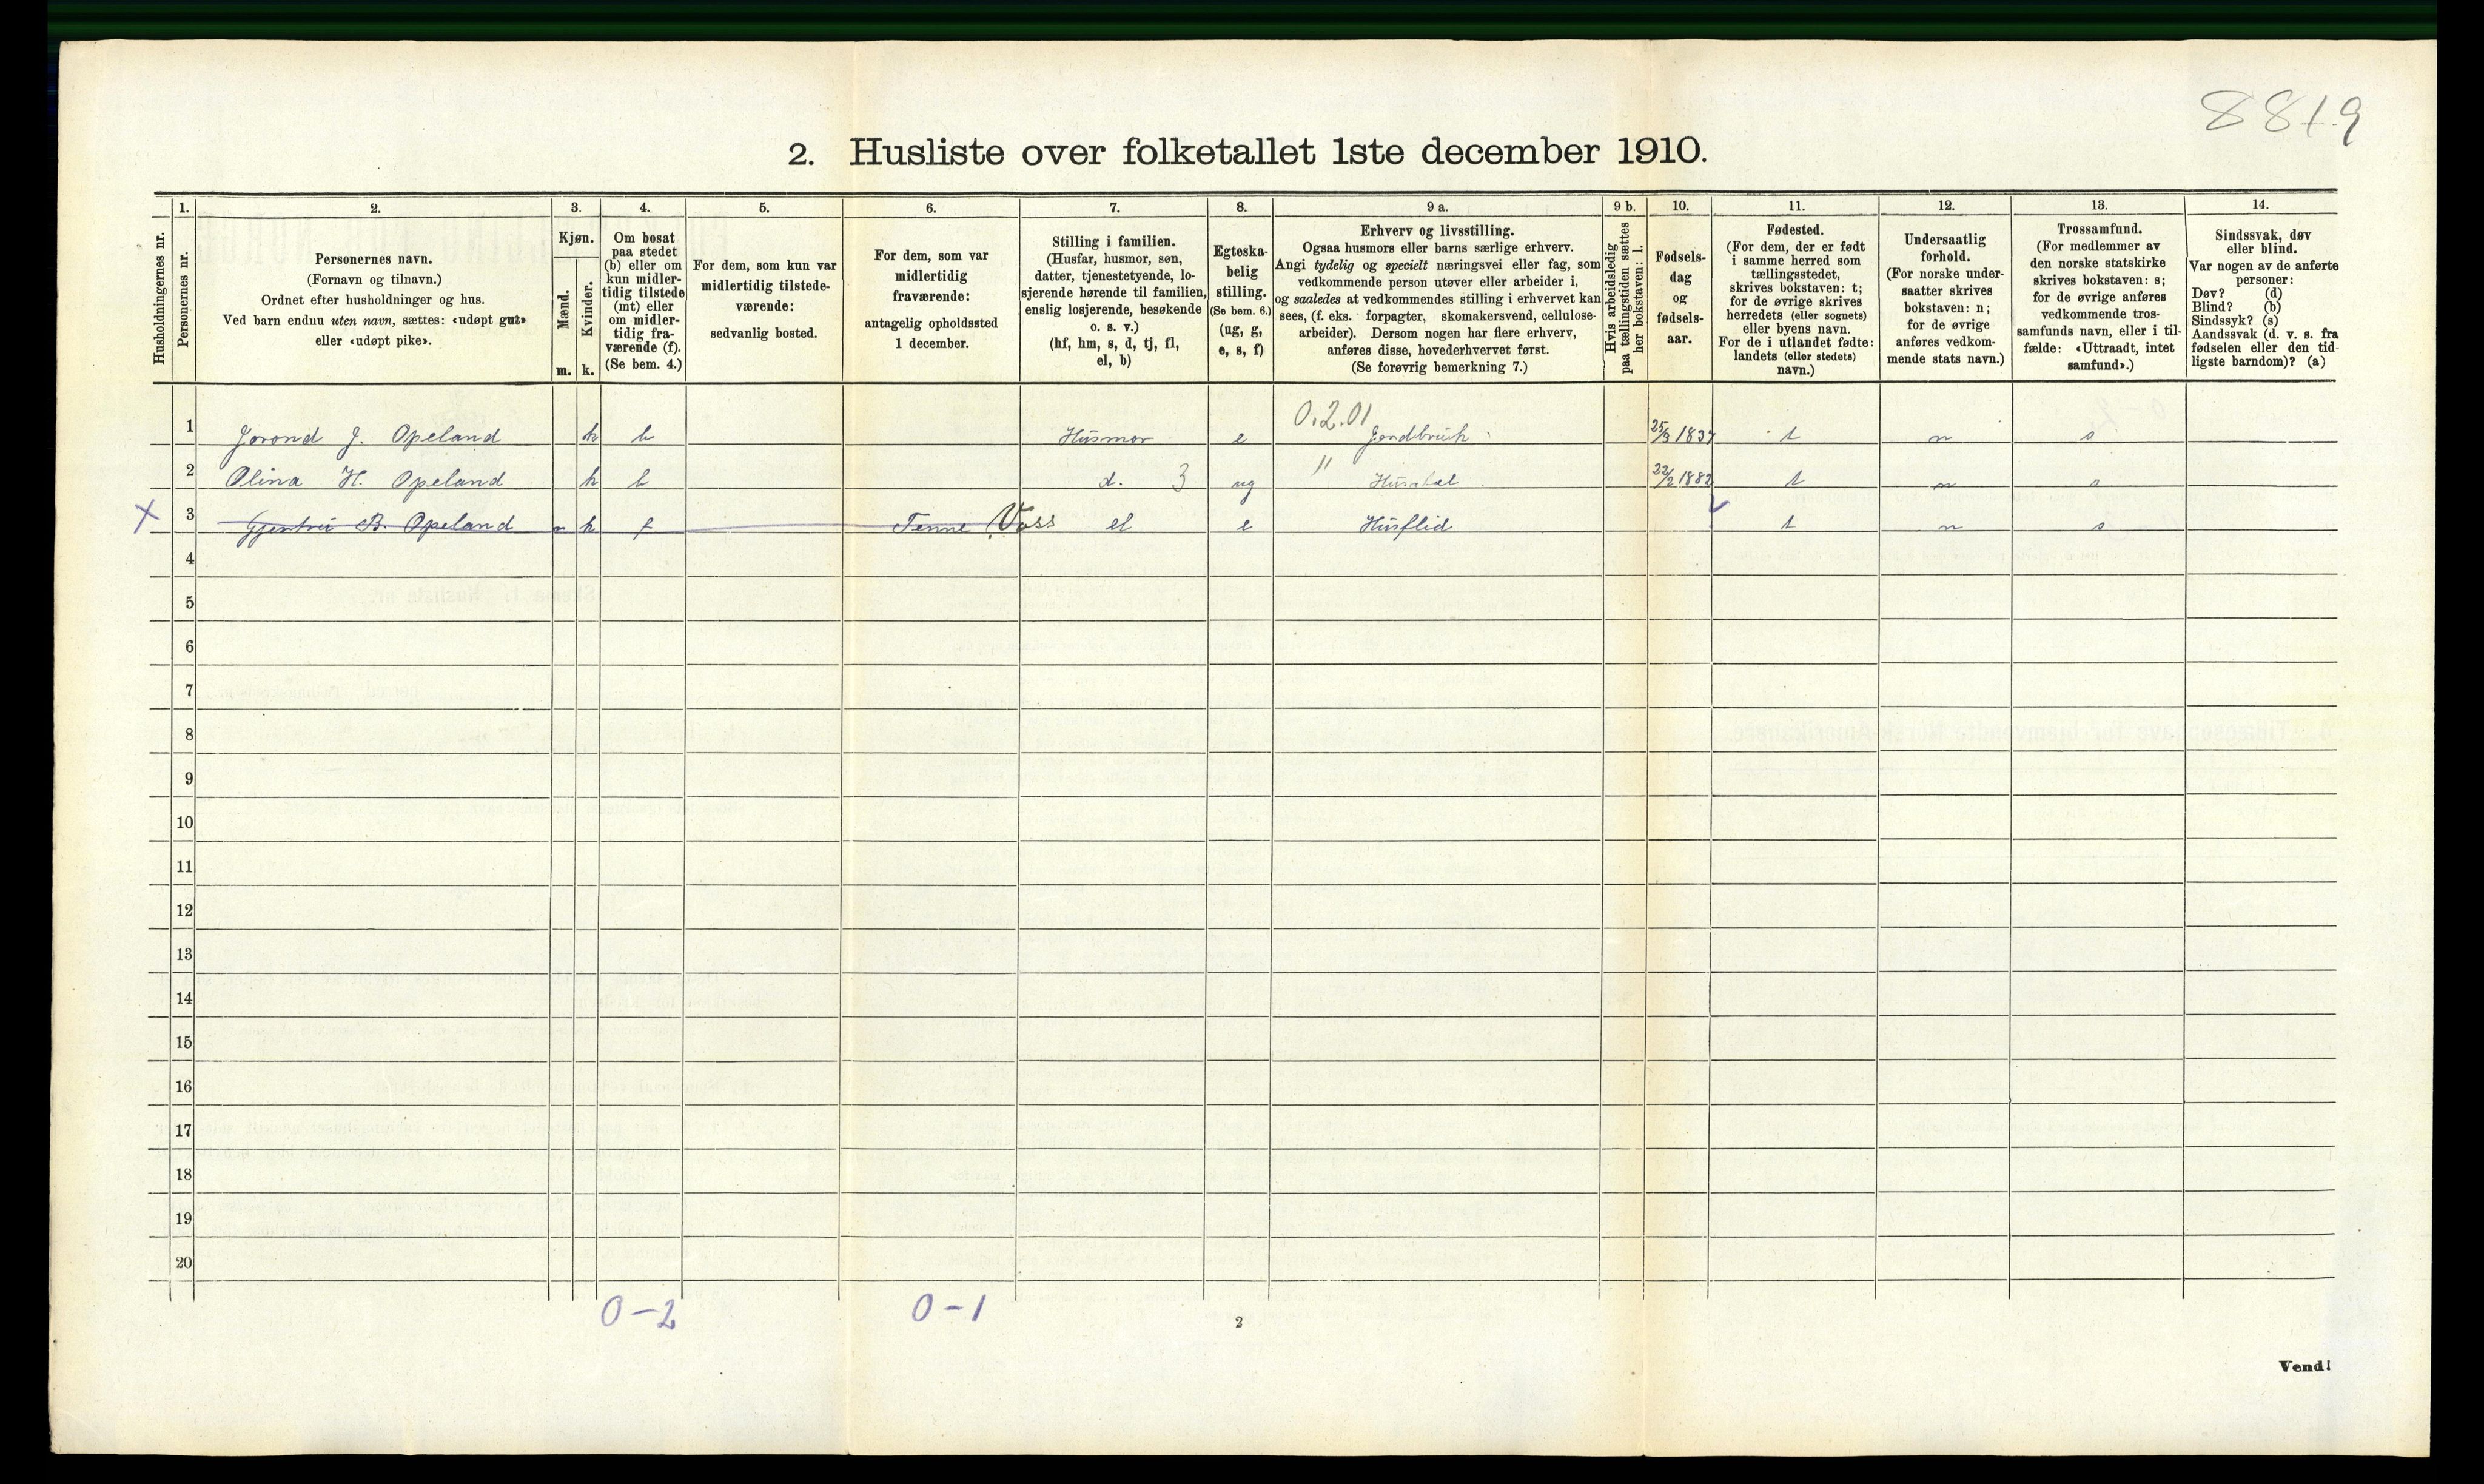 8819
2. Husliste over folketallet 1ste december 1910.
Husholdningernes nr.
1.
Personernes nr.
2.
Personernes navn.
(Fornavn og tilnavn.)
Ordnet efter husholdninger og hus.
Ved barn endnu uten navn, sættes: «udøpt gut»
eller «udøpt pike».
3.
Kjøn.
Mænd.
Kvinder.
m. k.
4.
Om bosat
paa stedet
(b) eller om
kun midler-
tidig tilstede
(mt) eller
om midler-
tidig fra-
værende (f).
(Se bem. 4.)
5.
For dem, som kun var
midlertidig tilstede-
værende:
sedvanlig bosted.
6.
For dem, som var
midlertidig
fraværende:
antagelig opholdssted
1 december.
7.
Stilling i familien.
(Husfar, husmor, søn,
datter, tjenestetyende, lo-
sjerende hørende til familien,
enslig losjerende, besøkende
o. s. v.)
(hf, hm, s, d, tj, fl,
el, b)
8.
Egteska-
belig
stilling.
(Se bem. 6.)
(ug, g,
e, s, f)
9 a.
Erhverv og livsstilling.
Ogsaa husmors eller barns særlige erhverv.
Angi tydelig og specielt næringsvei eller fag, som
vedkommende person utøver eller arbeider i,
og saaledes at vedkommendes stilling i erhvervet kan
sees, (f. eks. forpagter, skomakersvend, cellulose-
arbeider). Dersom nogen har flere erhverv,
anføres disse, hovederhvervet først.
(Se forøvrig bemerkning 7.)
9 b.
Hvis arbeidsledig
paa tællingstiden sættes
her bokstaven: l.
10.
Fødsels-
dag
og
fødsels-
aar.
11.
Fødested.
(For dem, der er født
i samme herred som
tællingsstedet,
skrives bokstaven: t;
for de øvrige skrives
herredets (eller sognets)
eller byens navn.
For de i utlandet fødte:
landets (eller stedets)
navn.)
12.
Undersaatlig
forhold.
(For norske under-
saatter skrives
bokstaven: n;
for de øvrige
anføres vedkom-
mende stats navn.)
13.
Trossamfund.
(For medlemmer av
den norske statskirke
skrives bokstaven: s;
for de øvrige anføres
vedkommende tros-
samfunds navn, eller i til-
fælde: «Uttraadt, intet
samfund».)
14.
Sindssvak, døv
eller blind.
Var nogen av de anførte
personer:
Døv? (d)
Blind? (b)
Sindssyk? (s)
Aandssvak (d. v. s. fra
fødselen eller den tid-
ligste barndom)? (a)
0.2.01
1 Jorond J. Opeland k b Husmor e Jordbruk 25/3 1837 t n s
2 Olina H. Opeland k b d. 3 ug " Husstel 22/2 1882 t n s
X 3 Gjertrui B. Opeland k f Tenne Voss el e Husflid t n s
4
5
6
7
8
9
10
11
12
13
14
15
16
17
18
19
20
0-2 0-1
2
Vend!